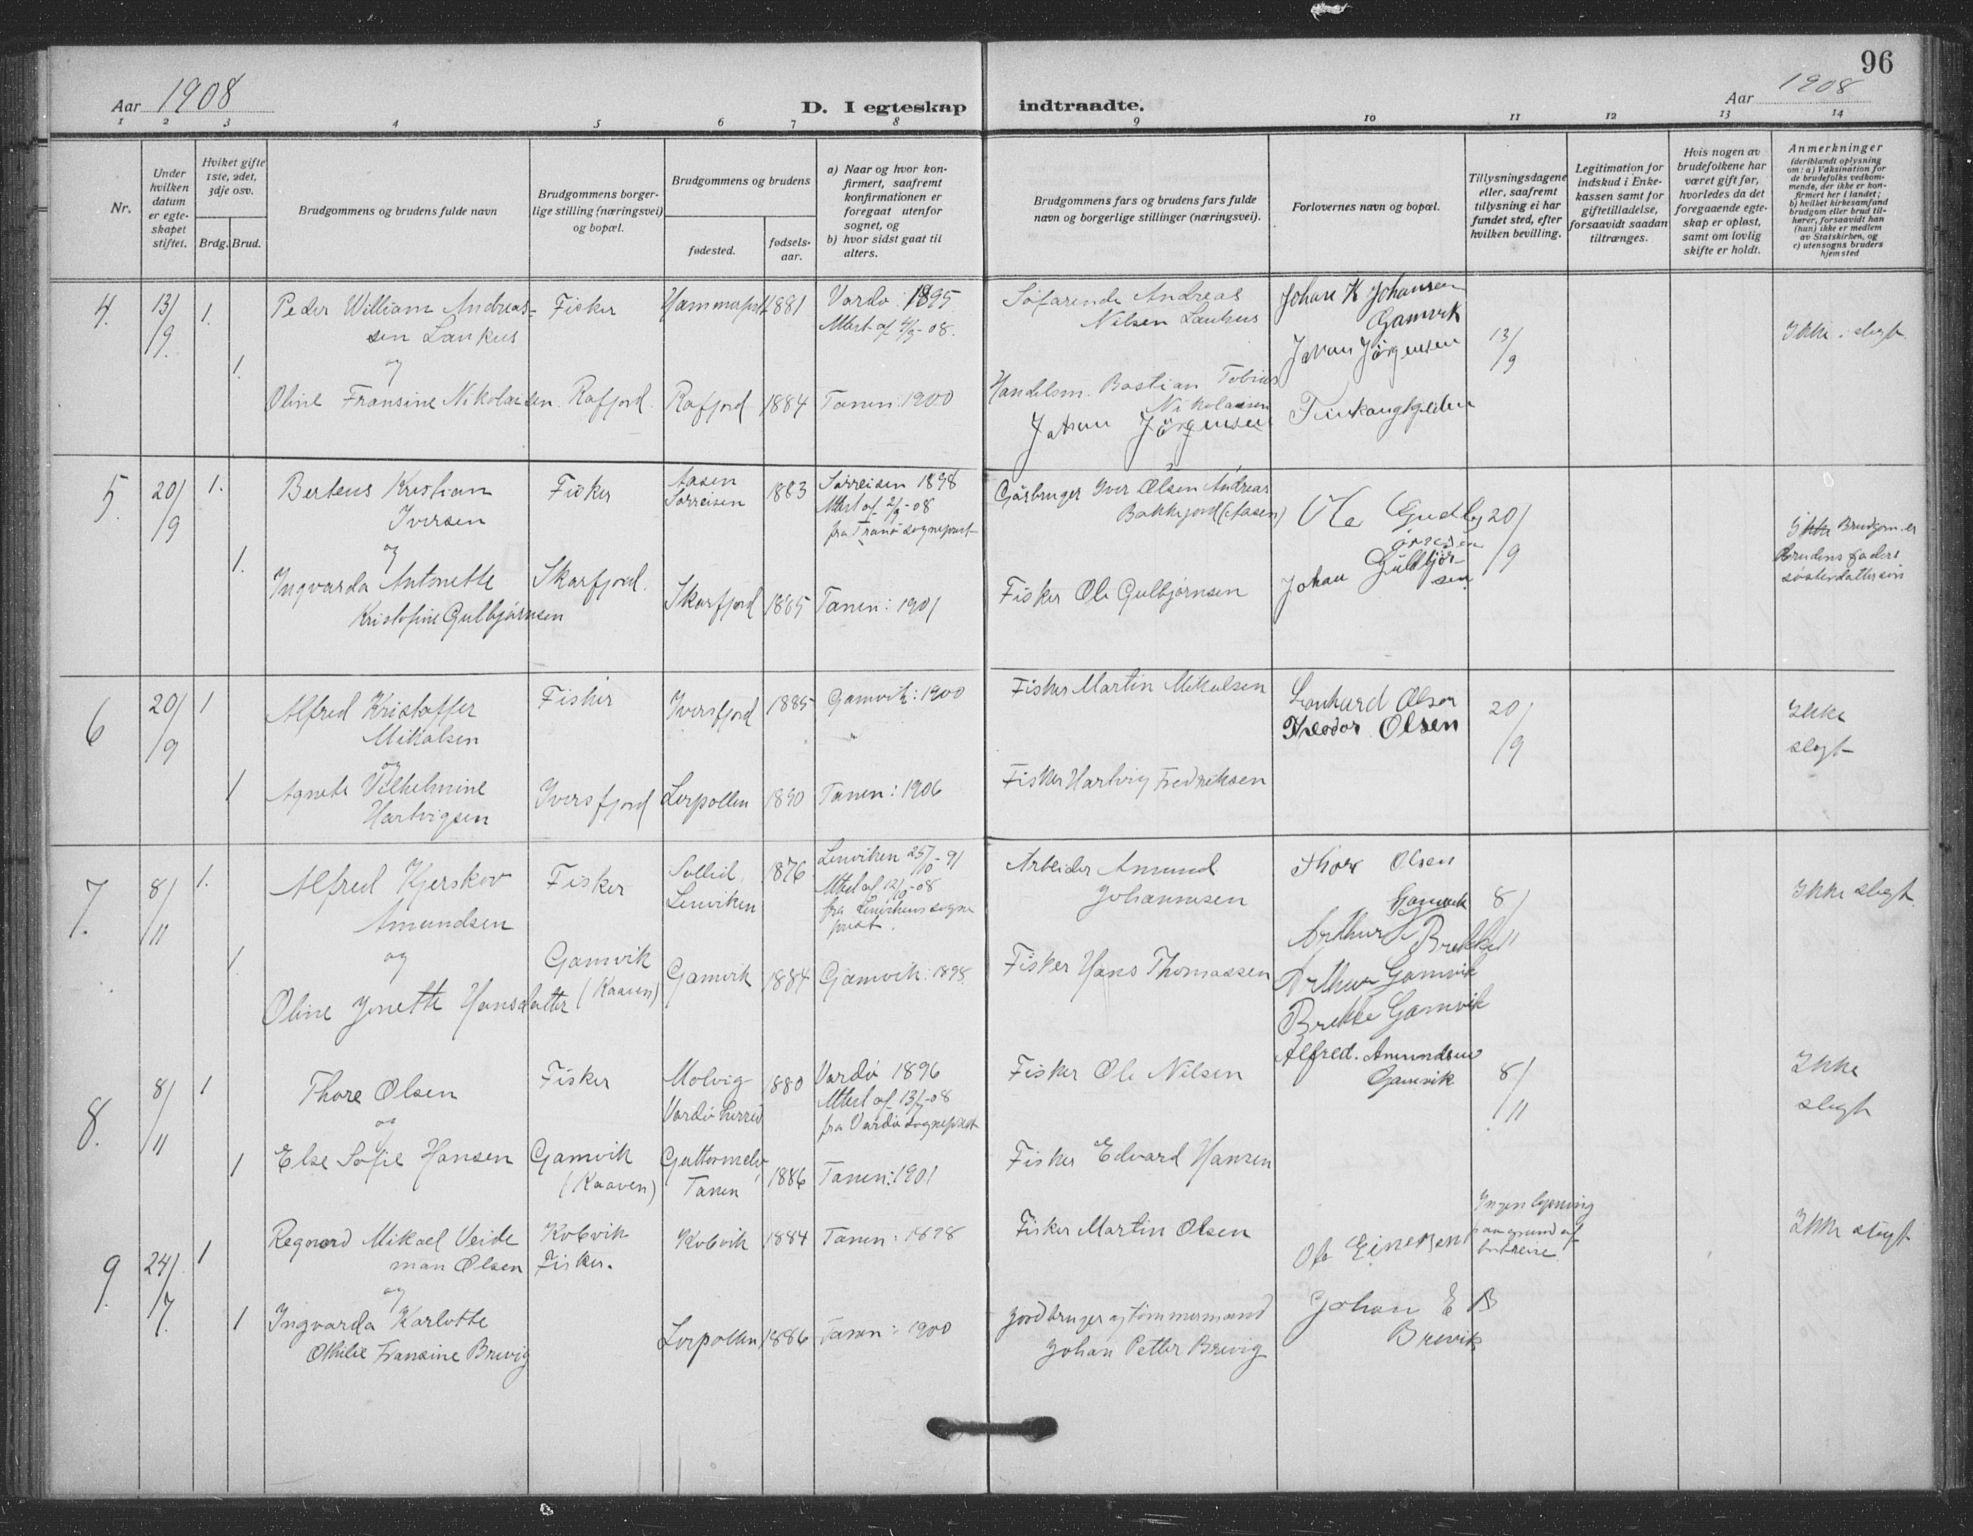 96
Aar 1908
D. I egteskap indtraadte.
Aar 1908
1 2 3 4 5 6 7 8 9 10 11 12 13 14
Nr.
Under hvilken datum er egteskapet stiftet.
Hviket gifte 1ste, 2det, 3dje osv.
Brdg. Brud.
Brudgommens og brudens fulde navn
Brudgommens borgerlige stilling (næringsvei) og bopæl.
Brudgommens og brudens
fødested.
fødselsaar.
a) Naar og hvor konfirmert, saafremt konfirmationen er foregaat utenfor sognet, og
b) hvor sidst gaat til alters.
Brudgommens fars og brudens fars fulde navn og borgerlige stillinger (næringsvei).
Forlovernes navn og bopæl.
Tillysningsdagene eller, saafremt tillysning ei har fundet sted, efter hvilken bevilling.
Legitimation for indskud i Enkekassen samt for giftetilladelse, forsaavidt saadan tiltrænges.
Hvis nogen av brudefolkene har været gift før, hvorledes da det foregaaende egteskap er opløst, samt om lovlig skifte er holdt.
Anmerkninger
(deriblandt oplysning om: a) Vaksination for de brudefolks vedkommende, der ikke er konfirmert her i landet; b) hvilket kirkesamfund brudgom eller brud tilhører, forsaavidt han (hun) ikke er medlem av Statskirken, og c) utensogns bruders hjemsted
4. 13/9. 1. Peder William Andreassen Lankus Fisker 1881 Vardø: 1895. Attest af 4/9-08. Søfarende Andreas Nilsen Lankus Johan K Johansen Gamvik 13/9 Ikke slegt.
og
1. Oline Fransine Nikolaisen Rafjord. Rafjord 1884 Tanen: 1900 Handelsm. Bastian Tobias Nikolaisen Johan Jørgensen
Johan Jørgensen
5. 20/9 1. Berteus Kristian Iversen Fisker Aasen Sørreisen 1883 Sørreisen 1898 Attest af 2/9-08 fra Tranø sogneprest Gaardbruger Iver Olsen Andreas Bakkejord (Aasen) Ole Gudbjørnsen 20/9 Ikke Brudgom er Brudens faders søsterdattersøn
og
1. Ingvarda Antonette Kristofine Gulbjørnsen Skarfjord. Skarfjord 1885 Tanen: 1901 Fisker Ole Gulbjørnsen Johan Guldbjørsen
6 20/9 1 Alfred Kristoffer Mikalsen Fisker Iversfjord 1885 Gamvik: 1900 Fisker Martin Mikalsen Lenhard Olsen Theodor Olsen 20/9 Ikke slegt
og
1 Agnete Vilhelmine Hartvigsen Iversfjord Lerpollen 1890 Tanen: 1906 Fisker Hartvig Fredriksen
7. 8/11 1. Alfred Kjerskov Amundsen Fisker Sollid, Lenviken 1876 Lenviken 25/10-91 Attest af 12/10-08 fra Lenvikens sogneprest. Arbeider Amund Johannesen Thor Olsen Gamvik 8/11 Ikke slegt.
og
1. Oline Jonette Hansdatter Gamvik (Kaaven) Gamvik 1884 Gamvik: 1898. Fisker Hans Thomassen Arthur Brekke Arthur Gamvik Brekke Gamvik
8. 8/11 1 Thore Olsen Fisker Molvig Vardø herred 1880 Vardø 1896 Attest af 13/7-08 fra Vardø sogneprest Fisker Ole Nilsen Alfred. Amundsen Gamvik 8/11 Ikke slegt
og
1 Else Sofie Hansen Gamvik (Kaaven) Guttormelv, Tanen 1886 Tanen: 1901 Fisker Edvard Hansen
9. 24/7. 1 Regnord Mikael Veideman Olsen Kobvik Fisker. Kobvik 1884 Tanen: 1898 Fisker Martin Olsen Ole Einersen Ingen lysning paa grund af bortreise Ikke slegt
og
1 Ingvarda Karlotte Othilie Fransine Brevig Lerpollen 1886 Tanen: 1900 Jordbruger og tømmermand Johan Petter Brevig Johan E B Brevik